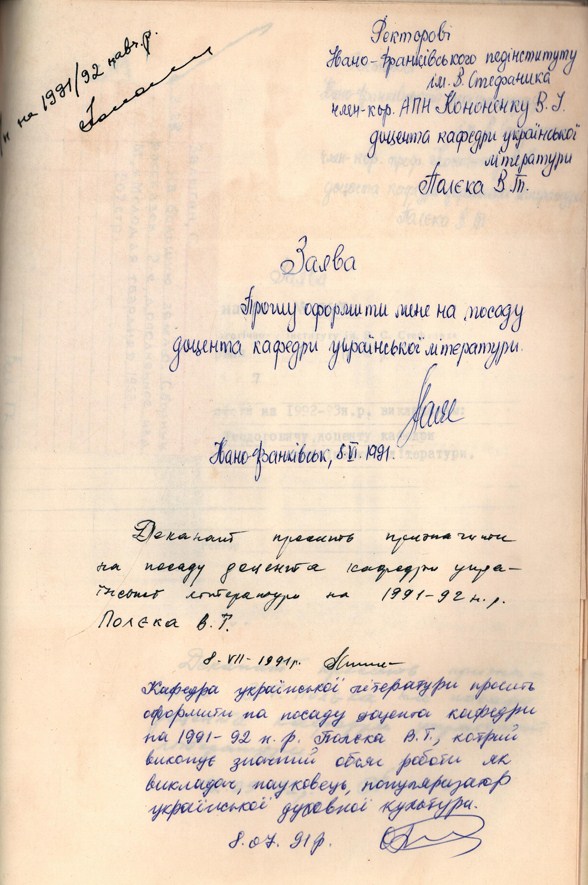 на 1991/92 навч.р.
Ректорові
Івано-Франківського педінституту
ім. В. Стефаника
член-кор. АПН Кононенку В. І.
доцента кафедри української
літератури
Полєка В. Т.
Заява
Прошу оформити мене на посаду
доцента кафедри української літератури.
Івано-Франківськ, 5.VI. 1991.
Деканат просить призначити
на посаду доцента кафедри укра-
їнської літератури на 1991-92 н.р.
Полєка В. Т.
8-VII-1991р.
Кафедра української літератури просить
оформити на посаду доцента кафедри
на 1991-92 н. р. Полєка В.Т., котрий
виконує значний обсяг роботи як
викладач, науковець, популяризатор
української духовної культури.
8.07.91р.